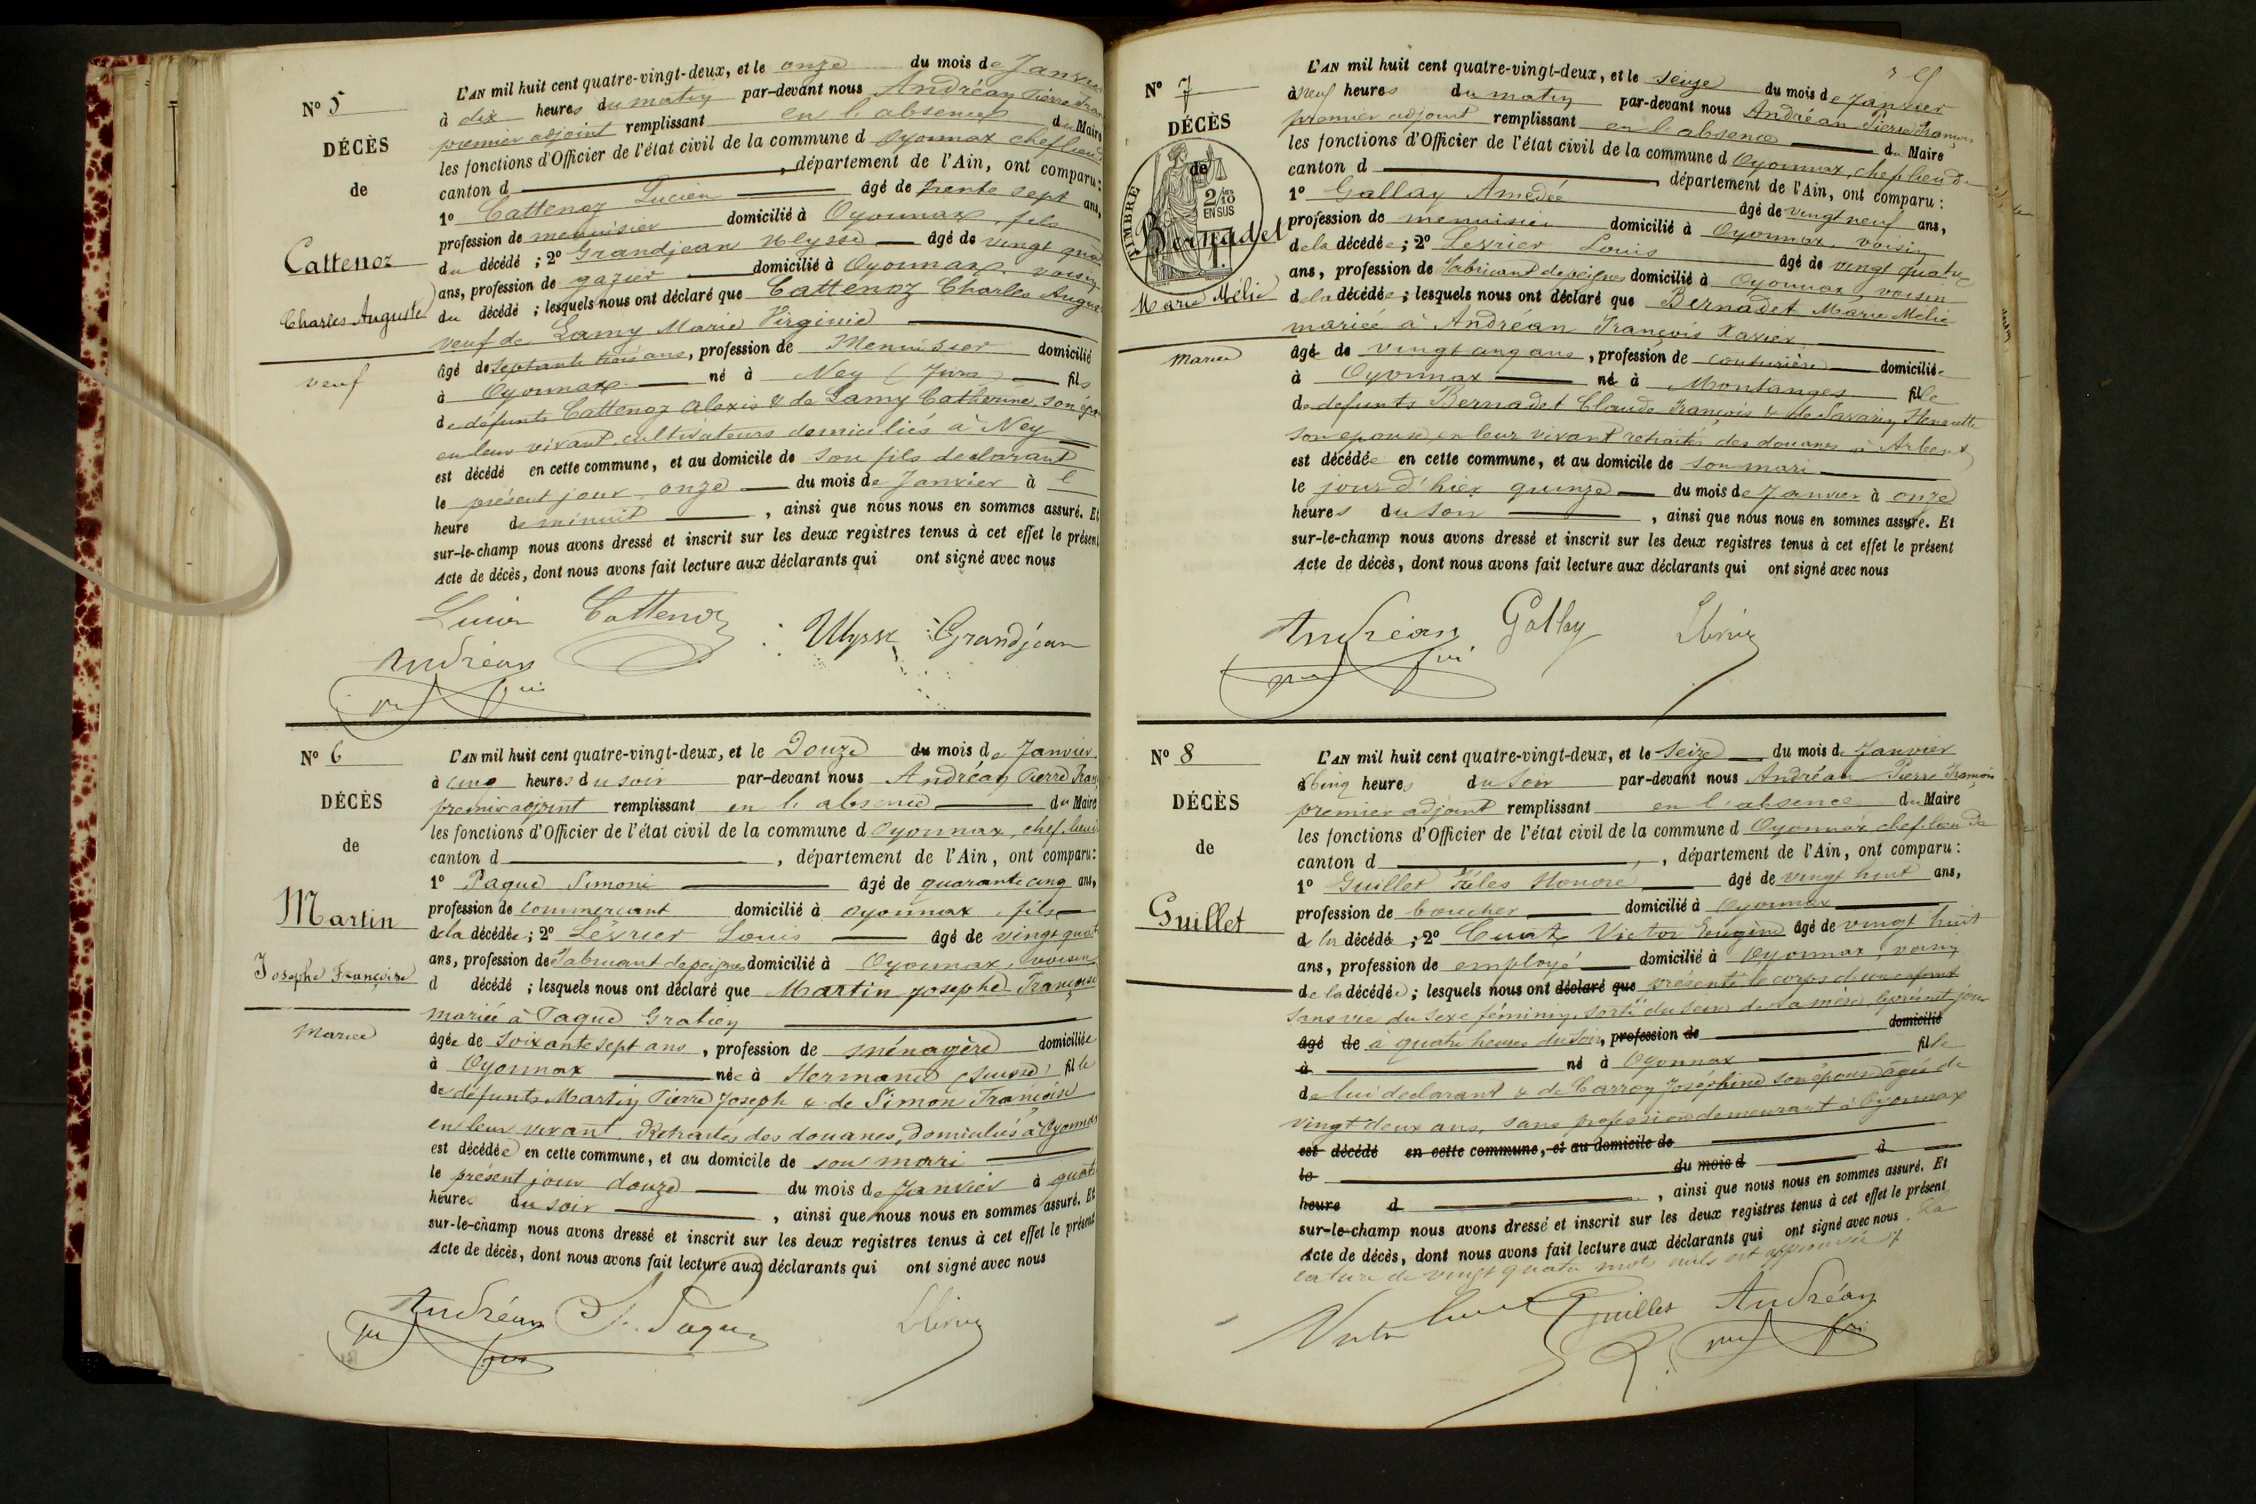 N° 5
DÉCÈS
de
Cattenoz
Charles Auguste
veuf
L'AN mil huit cent quatre-vingt-deux, et le onze du mois de Janvier
à dix heures du matin par-devant nous Andréan Pierre Fran
premier adjoint remplissant en l'absence du Maire
les fonctions d'Officier de l'état civil de la commune d Oyonnax chef lieu d
canton d , département de l'Ain, ont comparu:
1° Cattenoz Lucien âgé de trente sept ans,
profession de menuisier domicilié à Oyonnax, fils
du décédé ; 2° Grandjean Ulysse âgé de vingt qua
ans, profession de gazier domicilié à Oyonnax, voisin
du décédé ; lesquels nous ont déclaré que Cattenoz Charles Auguste
veuf de Lamy Marie Virginie
âgé de septante trois ans, profession de Menuisier domicilié
à Oyonnax né à Ney (Jura) fils
de défunts Cattenoz Alexis & de Lamy Catherine son épo
en leur vivant cultivateurs domiciliés à Ney
est décédé en cette commune, et au domicile de son fils declarant
le présent jour onze du mois de Janvier à l
heure de minuit , ainsi que nous nous en sommes assuré. Et
sur-le-champ nous avons dressé et inscrit sur les deux registres tenus à cet effet le présent
Acte de décès, dont nous avons fait lecture aux déclarants qui ont signé avec nous
Lucien Cattenoz Ulysse Grandjean
Andréan
N° 6
DÉCÈS
de
Martin
Josephe Françoise
Mariée
L'AN mil huit cent quatre-vingt-deux, et le Douze du mois de Janvier
à cinq heures du soir par-devant nous Andréan Pierre Fran
premier adjoint remplissant en l'absence du Maire
les fonctions d'Officier de l'état civil de la commune d Oyonnax, chef lieu d
canton d , département de l'Ain, ont comparu:
1° Paque Simoni âgé de quarante cinq ans,
profession de commerçant domicilié à Oyonnax, fils
de la décédée ; 2° Lévrier Louis âgé de vingt quat
ans, profession de Fabricant de peignes domicilié à Oyonnax, voisin
d décédé ; lesquels nous ont déclaré que Martin Josephe Françoise
mariée à Paque Gratien
âgée de soixante sept ans, profession de ménagère domiciliée
à Oyonnax née à Hermance (Suisse) fille
de défunts Martin Pierre Joseph & de Simon Françoise
en leur vivant Retraités des douanes, domiciliés à Oyonnax
est décédée en cette commune, et au domicile de son mari
le présent jour douze du mois de Janvier à quatre
heures du soir , ainsi que nous nous en sommes assuré. Et
sur-le-champ nous avons dressé et inscrit sur les deux registres tenus à cet effet le présent
Acte de décès, dont nous avons fait lecture aux déclarants qui ont signé avec nous
Andréan S. Paque
N° 7
DÉCÈS
de
TIMBRE
2/10 EN SUS
Bernadet
Marie Mélie
Mariée
L'AN mil huit cent quatre-vingt-deux, et le seize du mois de Janvier
à neuf heures du matin par-devant nous Andréan Pierre François
premier adjoint remplissant en l'absence du Maire
les fonctions d'Officier de l'état civil de la commune d Oyonnax, chef lieu de
canton d , département de l'Ain, ont comparu :
1° Gallay Amedée âgé de vingt neuf ans,
profession de menuisier domicilié à Oyonnax, voisin
de la décédée ; 2° Levrier Louis âgé de vingt quatre
ans, profession de Fabricant de peignes domicilié à Oyonnax, voisin
de la décédée ; lesquels nous ont déclaré que Bernadet Marie Mélie
mariée à Andréan François Xavier
âgé de vingt cinq ans, profession de couturière domiciliée
à Oyonnax né à Montanges fille
de defunts Bernadet Claude François & de Savarin Henriette
son epouse en leur vivant retraités des douanes à Arbent
est décédée en cette commune, et au domicile de son mari
le jour d'hier quinze du mois de Janvier à onze
heures du soir , ainsi que nous nous en sommes assuré. Et
sur-le-champ nous avons dressé et inscrit sur les deux registres tenus à cet effet le présent
Acte de décès, dont nous avons fait lecture aux déclarants qui ont signé avec nous
Andréan Gallay
N° 8
DÉCÈS
de
Guillet
L'AN mil huit cent quatre-vingt-deux, et le seize du mois de Janvier
à Cinq heures du soir par-devant nous Andréan Pierre François
premier adjoint remplissant en l'absence du Maire
les fonctions d'Officier de l'état civil de la commune d Oyonnax chef lieu de
canton d , département de l'Ain, ont comparu :
1° Guillet Honoré âgé de vingt huit ans,
profession de boucher domicilié à Oyonnax
de la décédée ; 2° Cuaz Victor Eugène âgé de vingt huit
ans, profession de employé domicilié à Oyonnax, voisin
de la décédée ; lesquels nous ont déclaré que présenté le corps d'un enfant
sans vie du sexe féminin, sorti du sein de sa mère le présent jour
âgé de à quatre heures du soir, profession de domicilié
à né à Oyonnax fille
de lui declarant & de Carroz Joséphine son épouse agée de
vingt deux ans, sans profession demeurant à Oyonnax
est décédé en cette commune, et au domicile de
le du mois d à
heure d , ainsi que nous nous en sommes assuré. Et
sur-le-champ nous avons dressé et inscrit sur les deux registres tenus à cet effet le présent
Acte de décès, dont nous avons fait lecture aux déclarants qui ont signé avec nous. La
rature de vingt quatre mots nuls est approuvée
Victor Cuaz Guillet Andréan